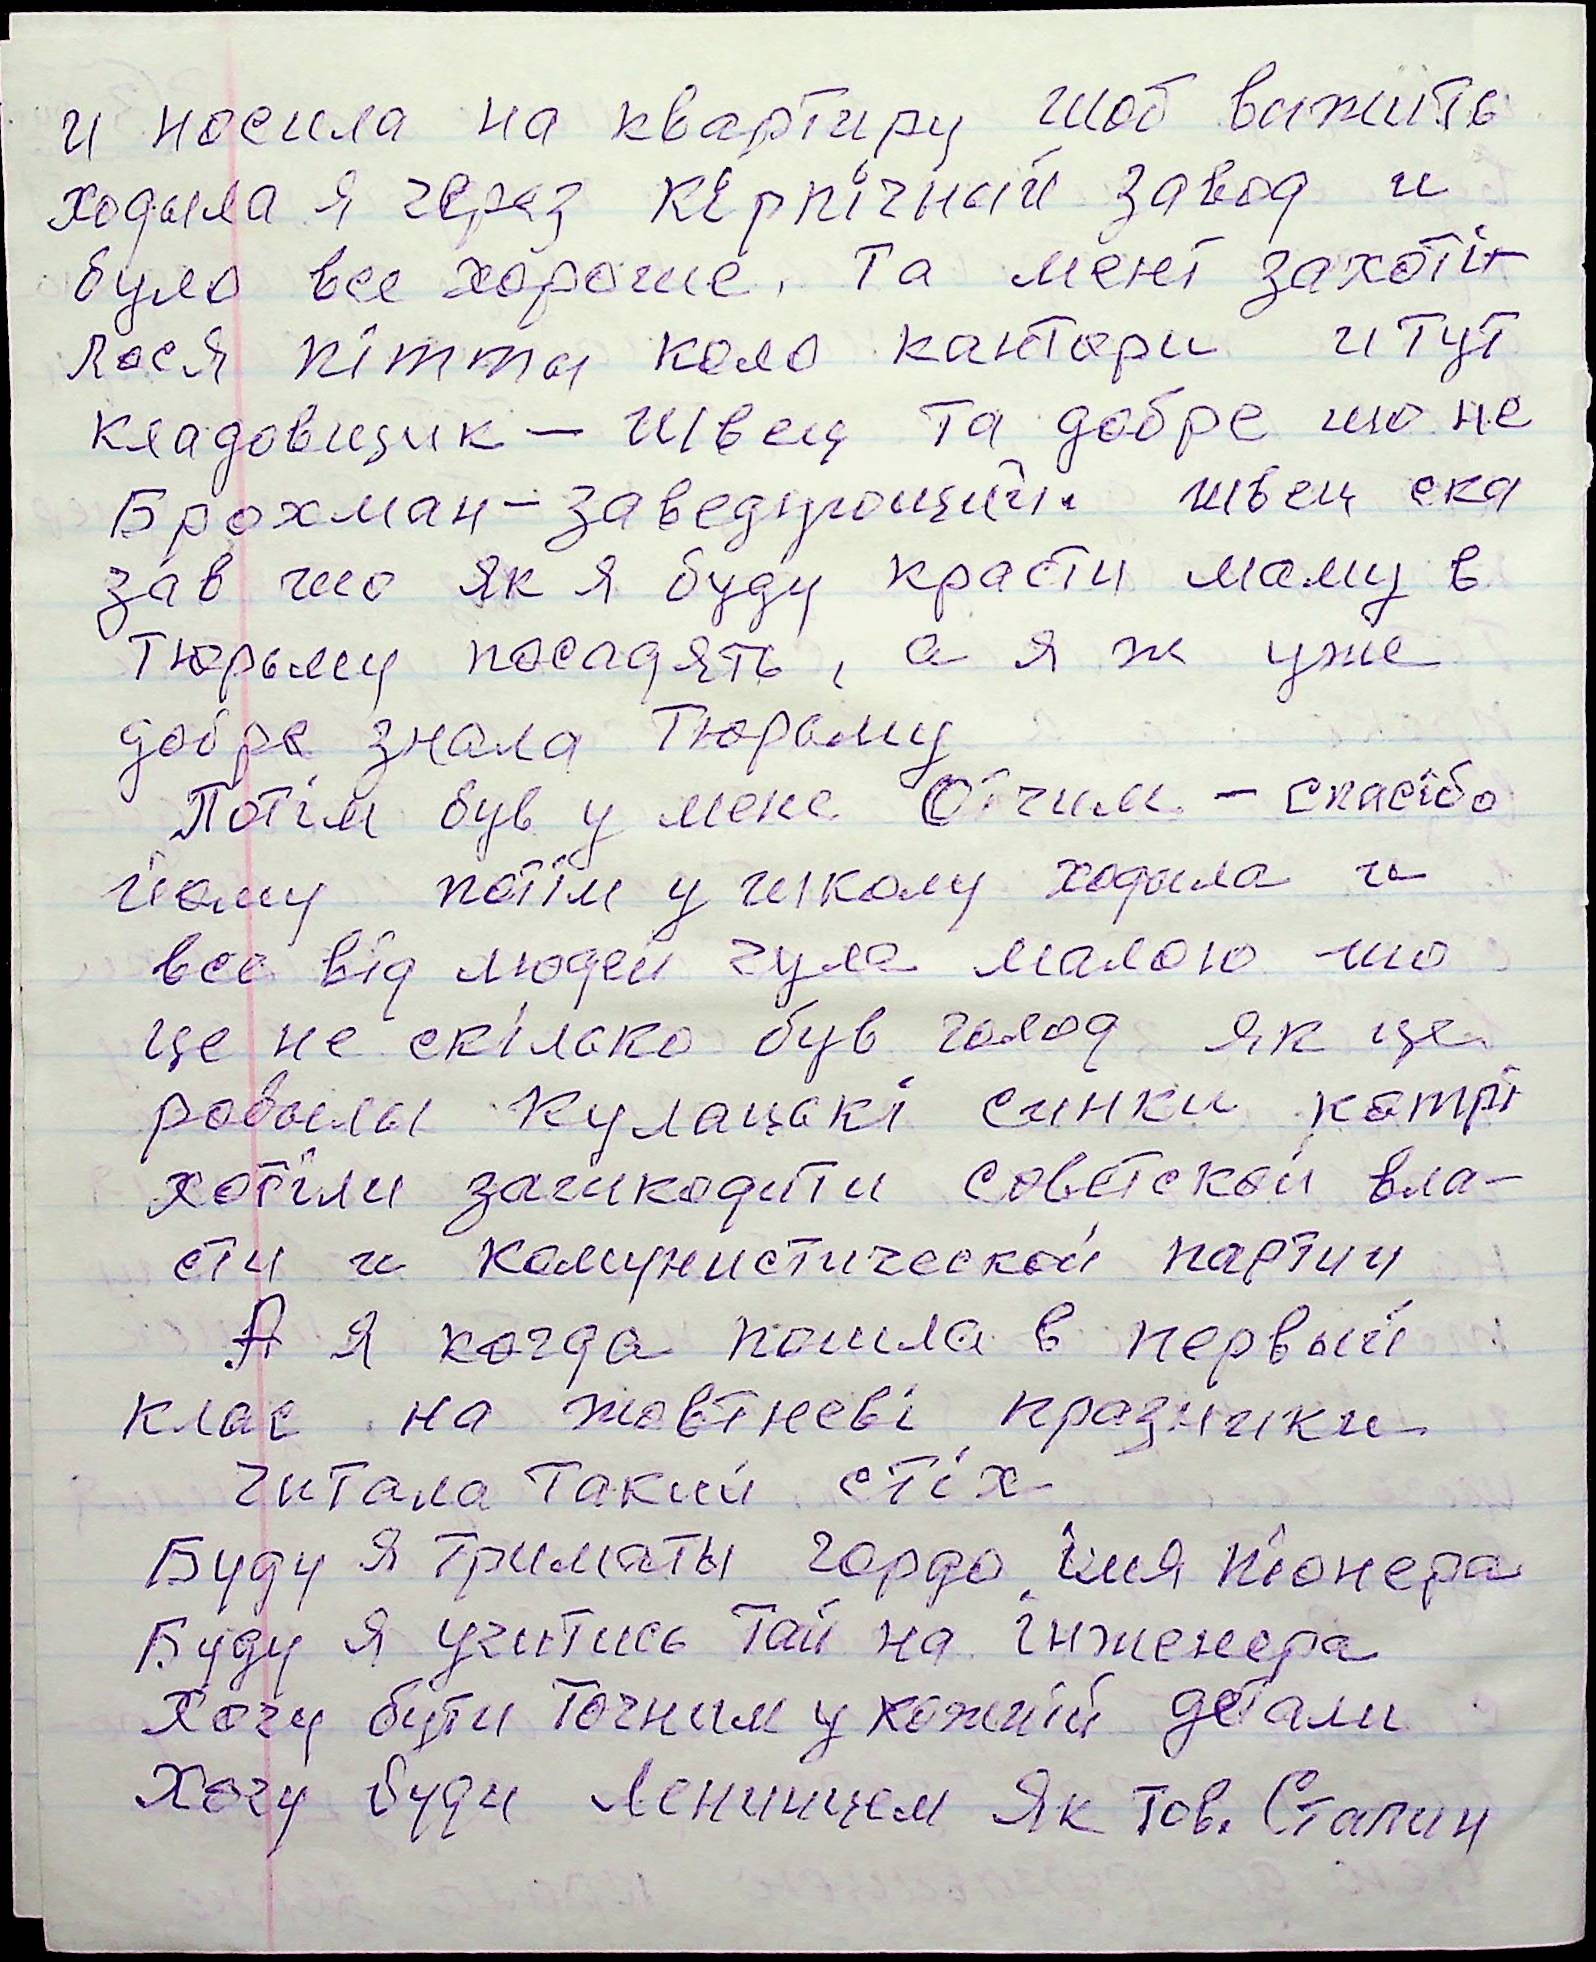 и носила на квартиру шоб вижить
ходыла я через кірпічний завод и
було все хороше, та мені захоті-
лося піти коло кантори и тут
кладовщик — Швец та добре що не
Брохман — заведующий. швец ска
зав що як я буду красти маму в
тюрьму посадять, а я ж уже
добре знала тюрьму
Потім був у мене Отчим — спасібо
йому потім у школу ходыла и
все від людей чула малою що
це не скілько був голод як це
робылы Кулацькі синки котрі
хотіли зашкодити советской вла-
сти и комунистической партии
А я когда пошла в первый
клас на жовтневі празники
читала такий стіх
Буду я триматы гордо імя піонера
Буду я учитись тай на інженера
Хочу бути точним у кожній детали
Хочу буди Ленинцем як тов. Сталин